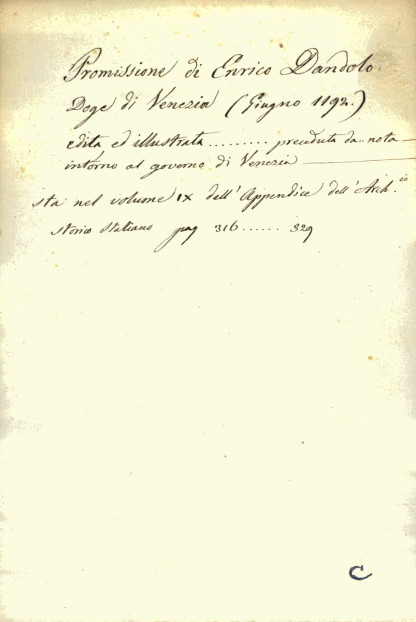 Promissione di Enrico Dandolo.
Doge di Venezia (Giugno 1192.)
edita ed illustrata ......... preceduta da .. nota
intorno al governo di Venezia
sta nel volume IX dell'Appendice dell'Arch.io
storico Italiano pag 316 ...... 329
C